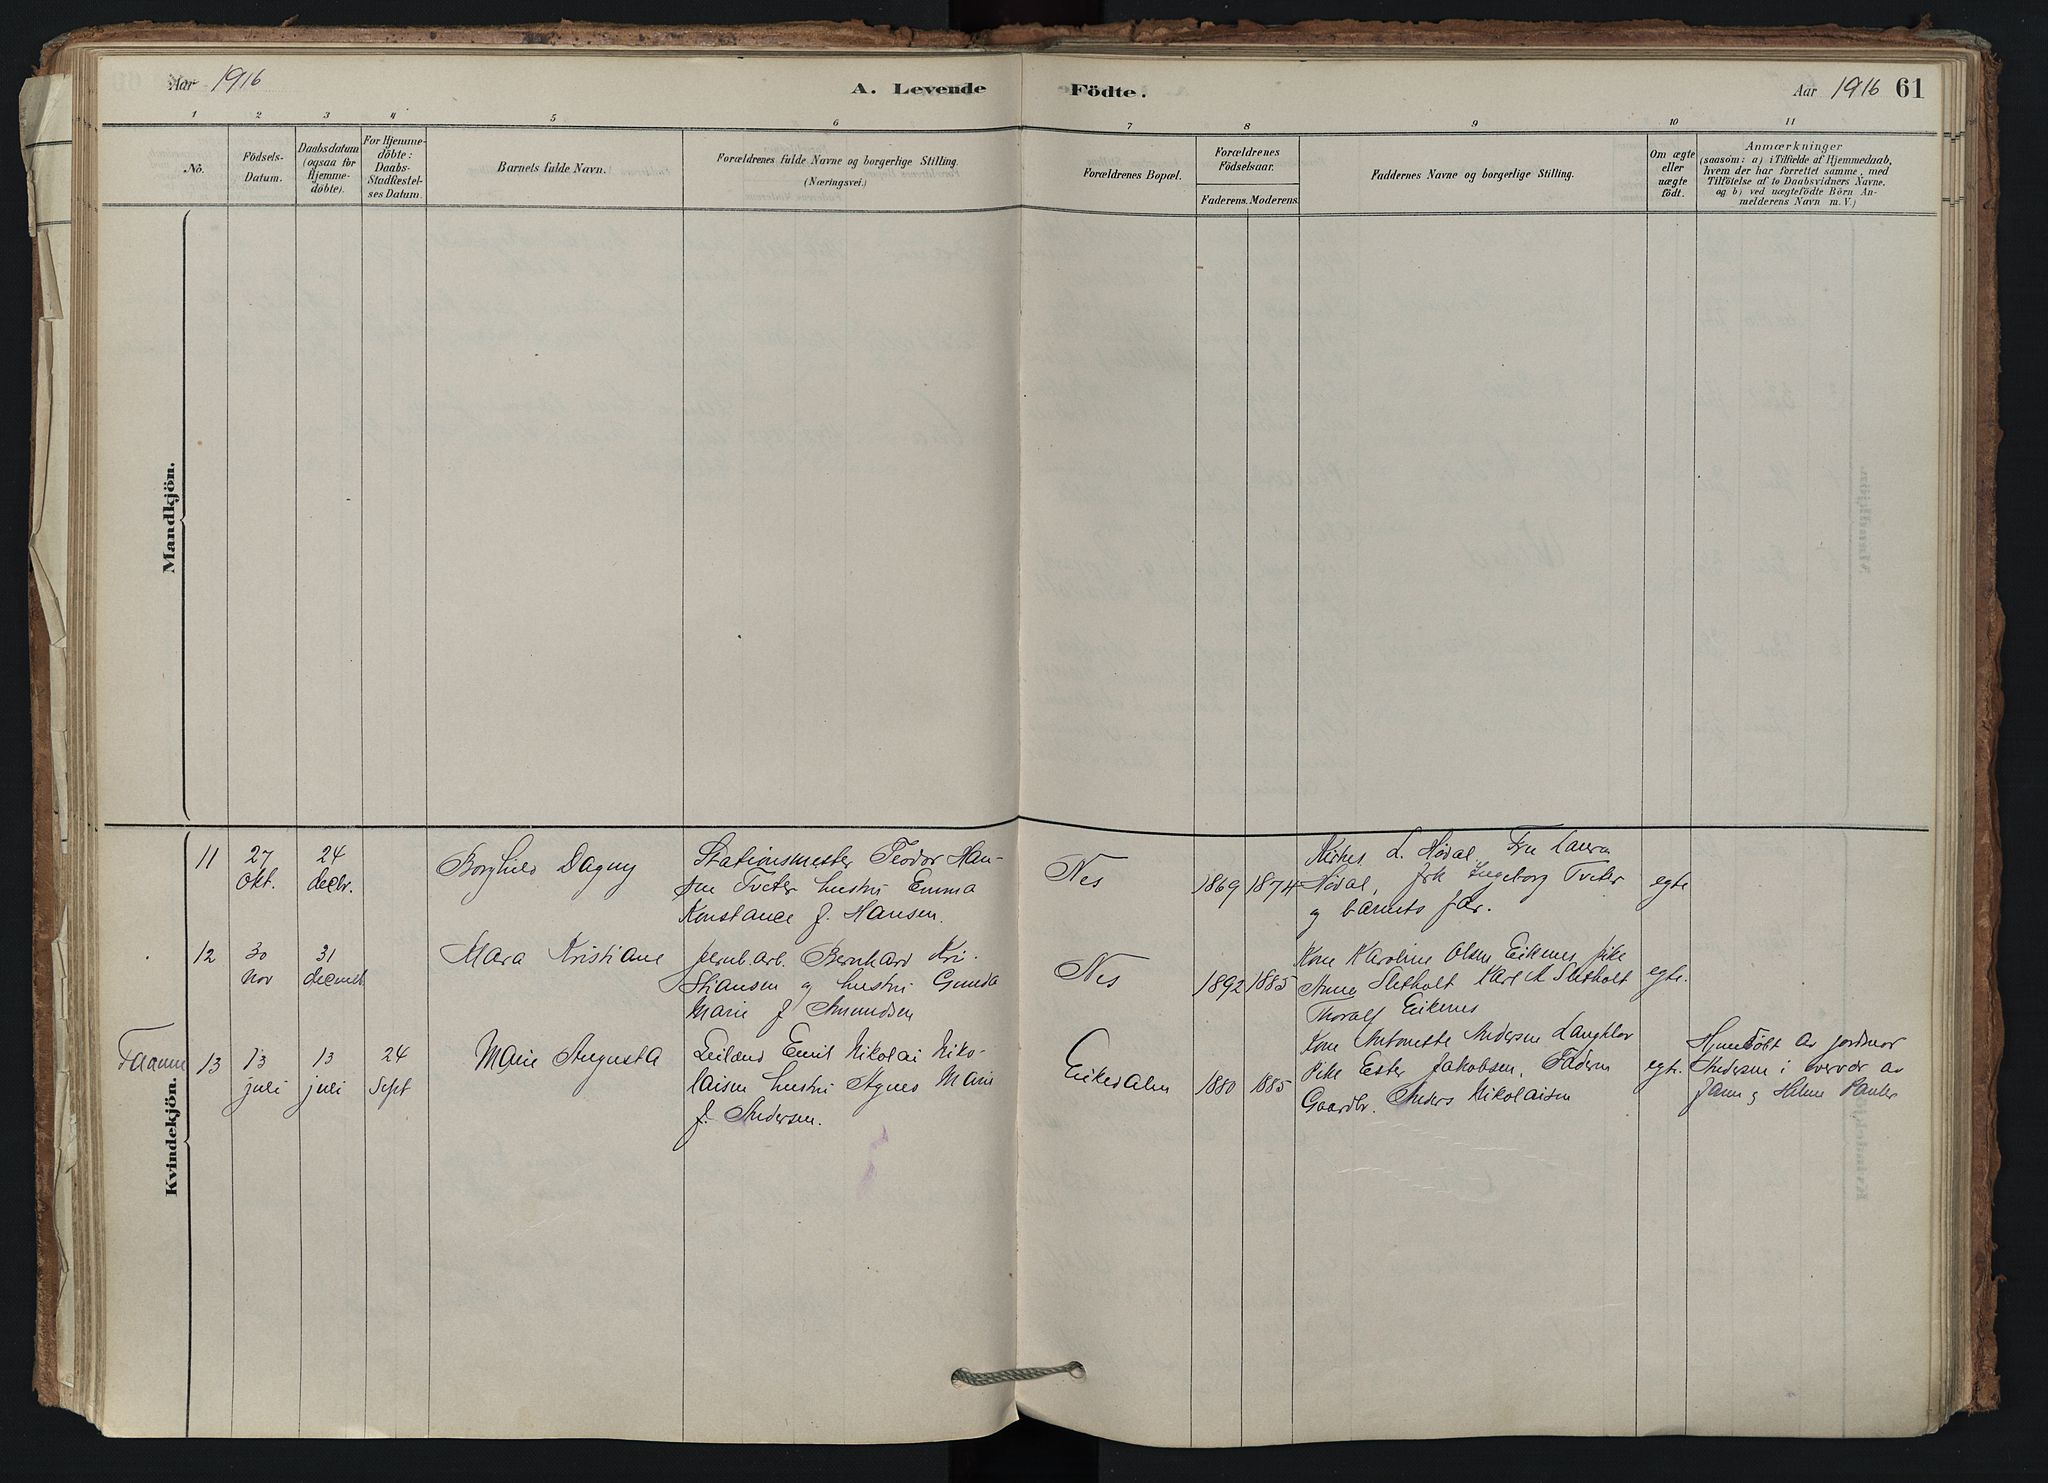 Aar 1916
A. Levende Födte.
Aar 1916 61
1 2 3 4 5 6 7 8 9 10 11
No.
Födsels-
Datum.
Daabsdatum
(ogsaa for
Hjemme-
döbte).
For Hjemme-
döbte:
Daabs-
Stadfæstel-
ses Datum.
Barnets fulde Navn.
Forældrenes fulde Navne og borgerlige Stilling.
(Næringsvei.)
Forældrenes Bopæl.
Forældrenes
Födselsaar.
Faderens. Moderens.
Faddernes Navne og borgerlige Stilling.
Om ægte
eller
uægte
födt.
Anmærkninger
(saasom: a) i Tilfælde af Hjemmedaab,
hvem der har forrettet samme, med
Tilföielse af to Daabsvidners Navne,
og b) ved uægtefödte Börn An-
melderens Navn m. V.)
Mandkjön.
Kvindekjön.
11
27
Okt.
24
decbr.
Borghild Dagny
Stationsmester Teodor Han-
sen Tveter hustru Emma
Konstance f. Hansen.
Nes
1869 1874
L. Nödal, Fru Laura
Nödal, frk Ingeborg Tveter
og barnets far.
egte
12
30
nov
31
decmb
Mara Kristiane
jernb.arb. Bernhard Kri-
stiansen og hustru Gunda
Marie f Amundsen
Nes
1892 1885
Kone Karoline Olsen Eikenes pike
Anna Sletholt Karl A Sletholt
Thoralf Eikenes
egte.
13
13
juli
13
juli
24
Sept
Marie Augusta
Leilænd Emil Nikolai Niko-
laisen hustru Agnes Marie
f. Andersen.
Eikedalen
1880 1885
Kone Antonette Andersen
Pike Ester Jakobsen,
Gaardbr. Anders Nikolaisen
egte.
Hjemdöbt av jordmor
Andersen i overvær av